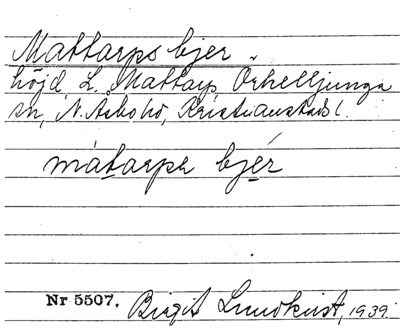 Mattarps bjer
höjd L. Mattarp Örkelljunga
sn, N. Åsbo hd, Kristianstads l.
màtarps bjér
Nr 5507. Birgit Lundkvist, 1939